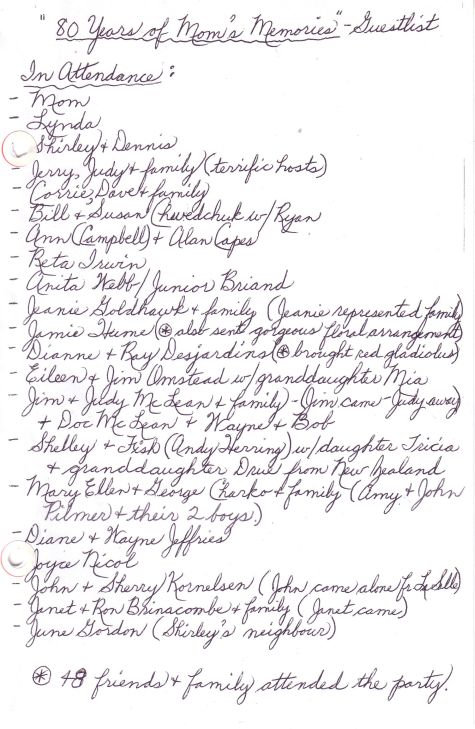 "80 Years of Mom's Memories" - Guestlist
In Attendance:
- Mom
- Lynda
- Shirley + Dennis
- Jerry, Judy + family (terrific hosts)
- Corrie, Dave + family
- Bill + Susan Chwedchuk w/ Ryan
- Ann (Campbell) + Alan Capes
- Reta Irwin
- Anita Webb / Junior Briand
- Jeanie Goldhawk + family (Jeanie represented family)
- Jamie Hume (* also sent gorgeous floral arrangement)
- Dianne + Ray Desjardins (* brought red gladiolus)
- Eileen + Jim Omstead w/ granddaughter Mia
- Jim + Judy McLean + family - (Jim came - Judy away)
+ Doc McLean + Wayne + Bob
- Shelley + Fish (Andy Herring) w/ daughter Tricia
+ granddaughter Drue from New Zealand
- Mary Ellen + George Charko + family (Amy + John
Pilmer + their 2 boys.)
- Diane + Wayne Jeffries
- Joyce Nicol
- John + Sherry Kornelsen (John came alone fr. LaSalle)
- Janet + Ron Brinacombe + family (Janet came)
- June Gordon (Shirley's neighbour)
* 48 friends + family attended the party.